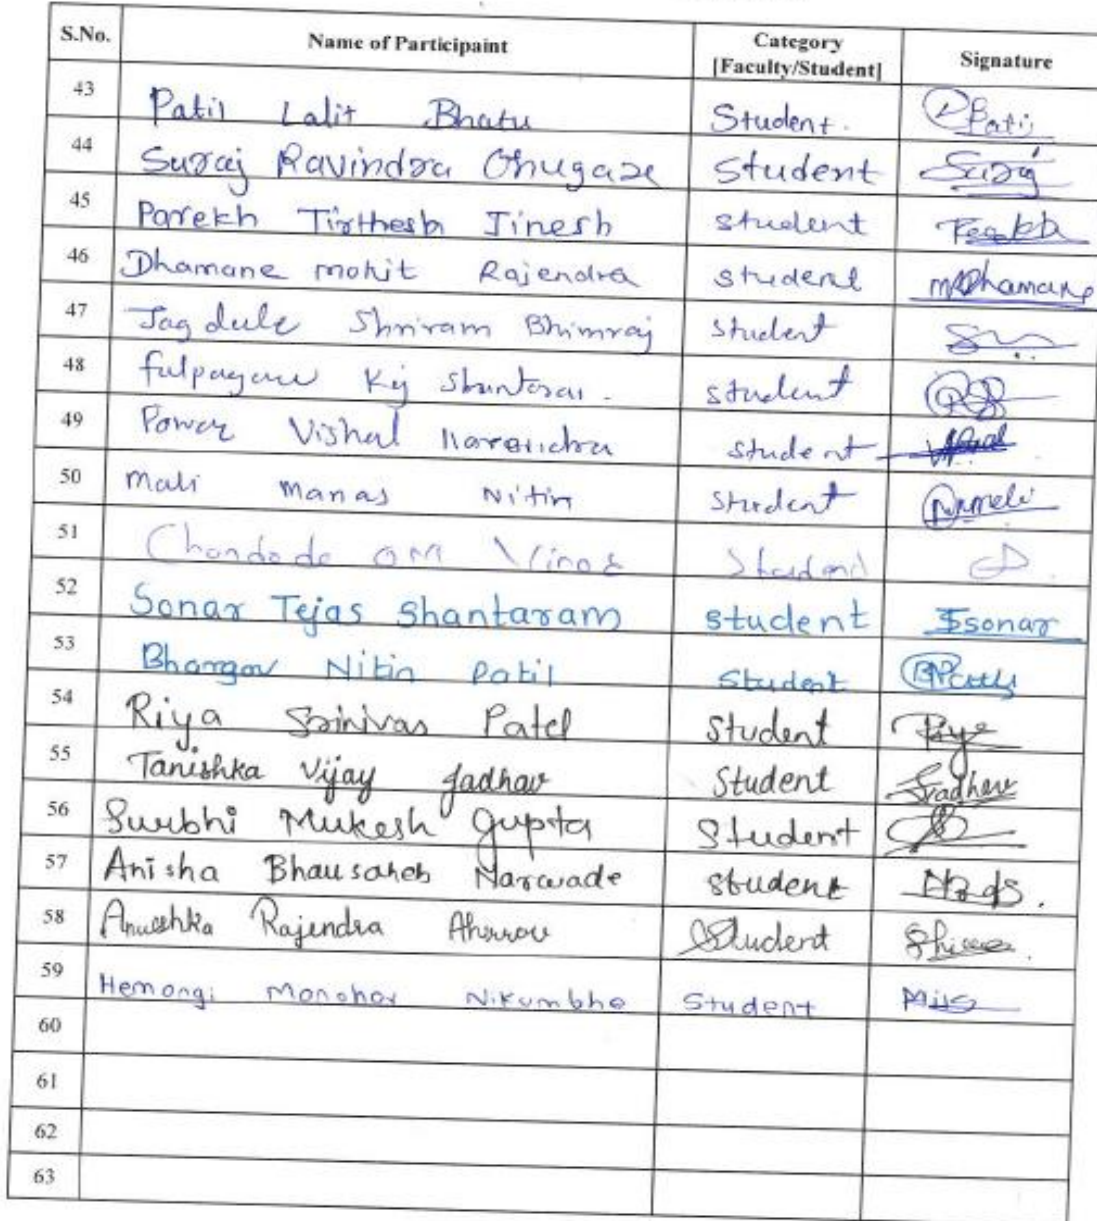 S.No. Name of Participaint Category [Faculty/Student] Signature
43 Patil Lalit Bhatu Student. Patil
44 Suraj Ravindra Ghugare Student Suraj
45 Parekh Tirthesh Jinesh student
46 Dhamane mohit Rajendra student MDhamane
47 Jagdule Shriram Bhimraj student
48 fulpagare student
49 Pawar Vishal student
50 Mali Manas Nitin student
51 Chandode OM Student
52 Sonar Tejas Shantaram student Tsonar
53 Bhargav Nitin Patil Student
54 Riya Srinivas Patel Student Riya
55 Tanishka Vijay Jadhav Student Jadhav
56 Surbhi Mukesh Gupta Student
57 Anisha Bhausaheb Narwade student
58 Anushka Rajendra Ahirrov Student
59 Hemangi Manohar Nikumbhe Student
60
61
62
63